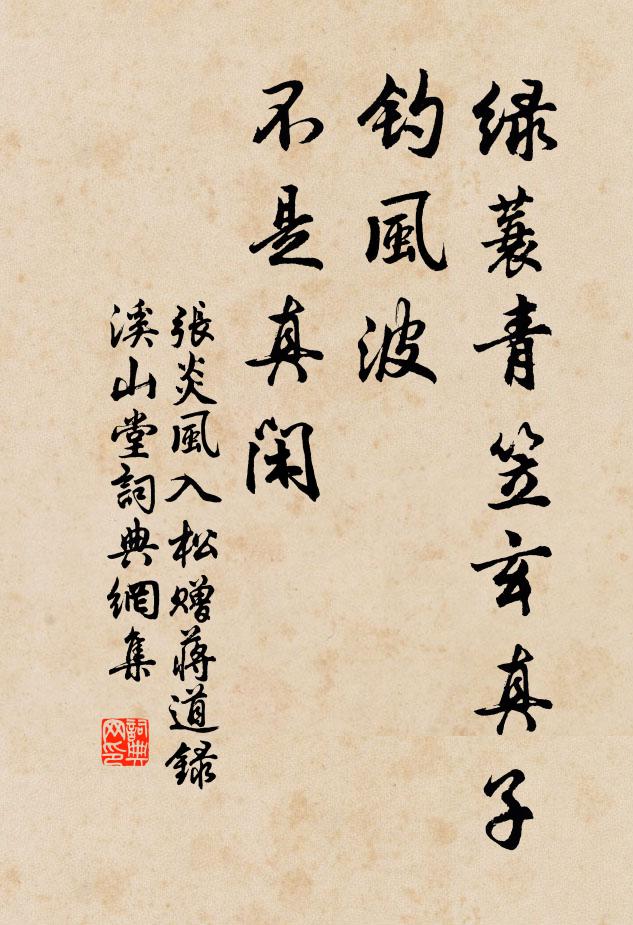 绿蓑青笠玄真子
钓風波
不是真闲
張炎風入松赠蒋道録
溪山堂詞典網集
詞典网印